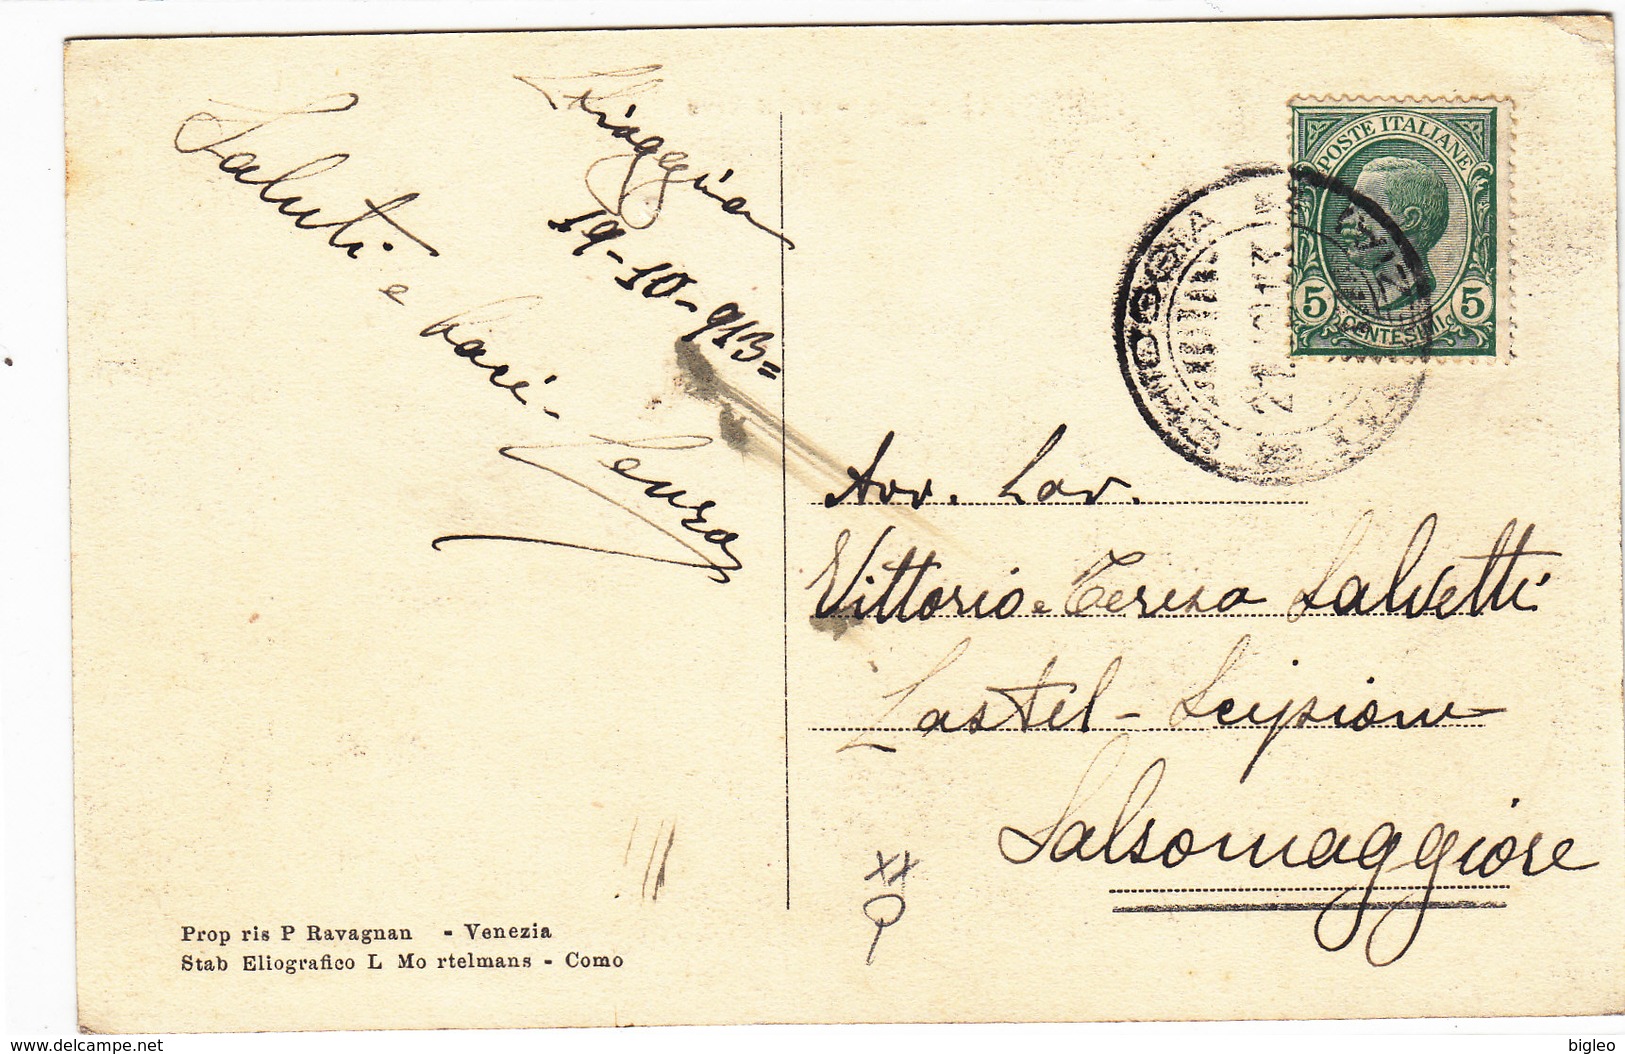 Chioggia
19-10-913=
Saluti e baci
POSTE ITALIANE
5 CENTESIMI 5
Avv. Cav.
Vittorio e Tereza Salvetti
Castel-Scipione
Salsomaggiore
XX
Prop ris P Ravagnan - Venezia
Stab Eliografico L Mo rtelmans - Como
delcampe.net
bigleo